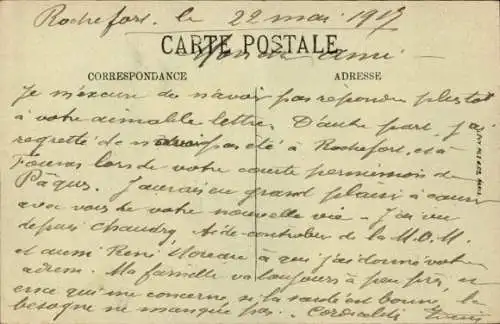 Rochefort. le 22 mai 1917
CARTE POSTALE
Mon cher ami
CORRESPONDANCE
ADRESSE
Je m'excuse de n'avoir pas répondu plus tot
à votre aimable lettre. D'autre part, j'ai
regretté de n'avoir pas été à Rochefort, et à
Fouras lors de votre courte permission de
Pâques. J'aurais eu grand plaisir à causer
avec vous de votre nouvelle vie. J'ai vu
depuis Chaudry Aide-controleur de la M.O.M.
et aussi René Moreau à qui j'ai donné votre
adresse. Ma famille va toujours à peu près, et
ce qui me concerne, si la santé est bonne, la
besogne ne manque pas. Cordialités